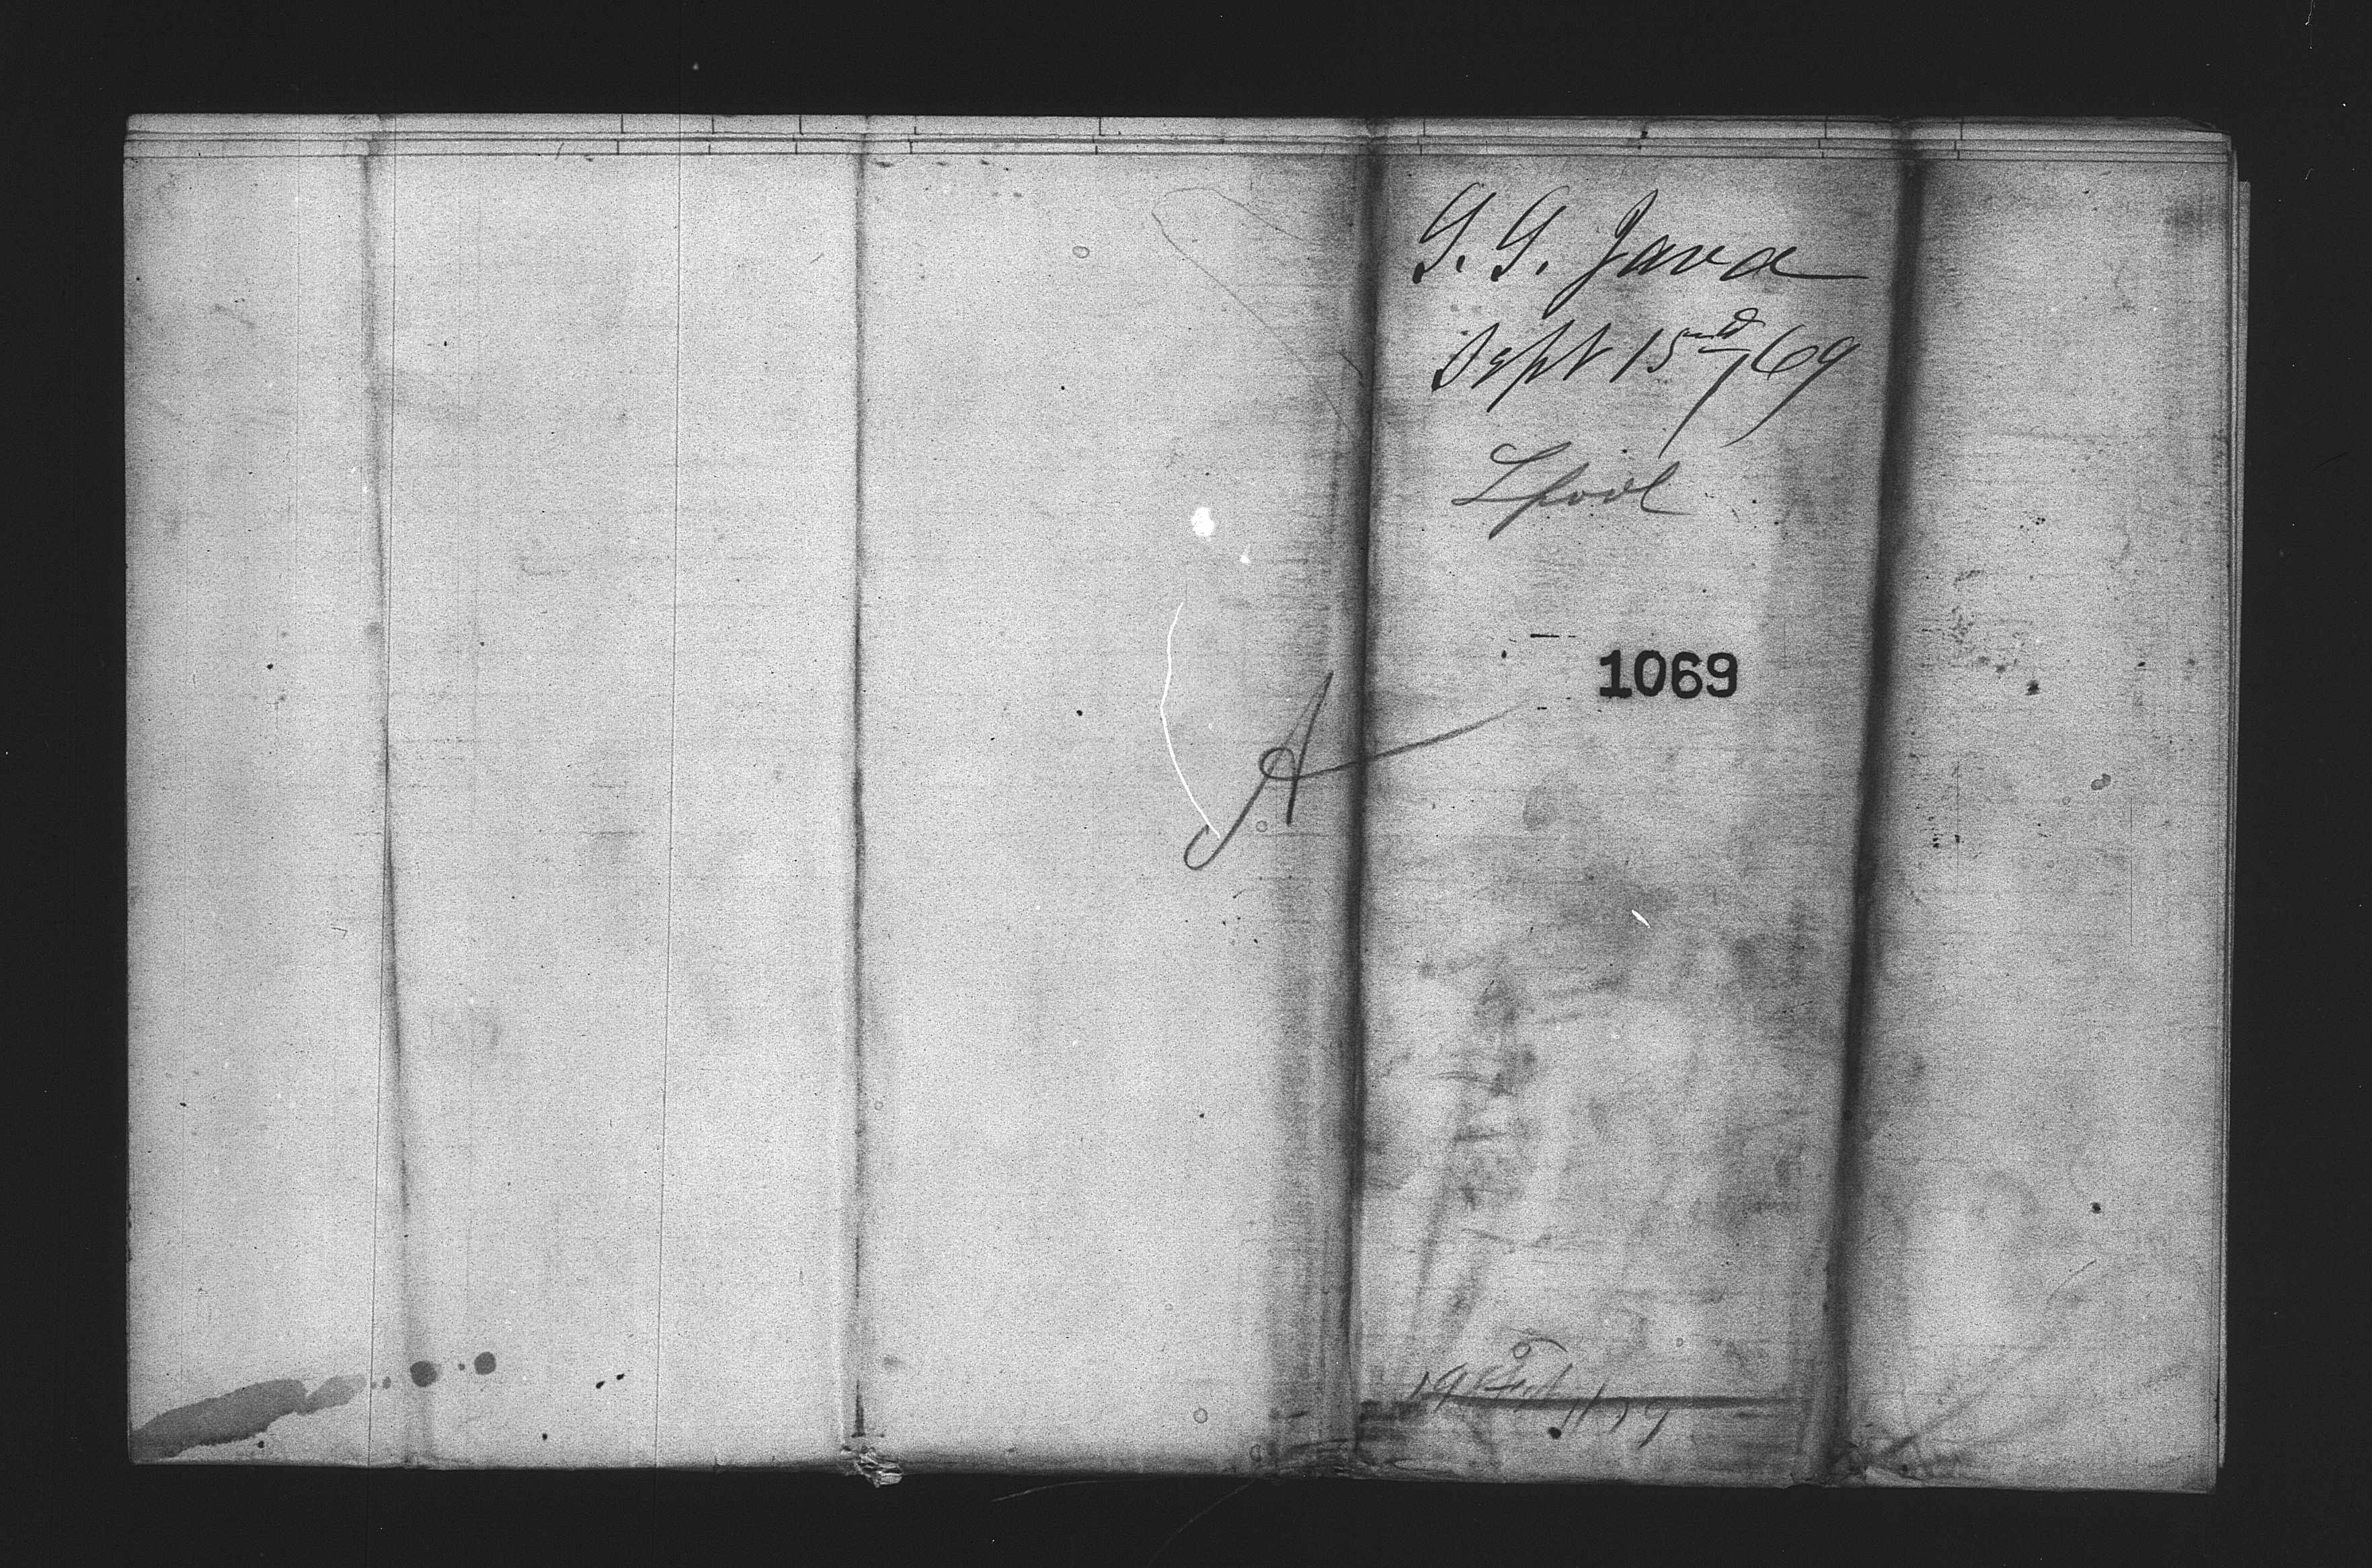 G. G. Java
Sept 15th/69
Lpool
1069
A